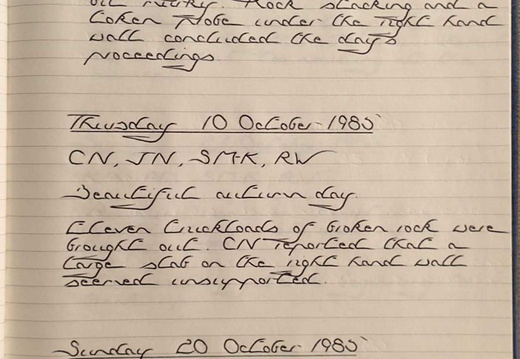 out . Rock stacking and a
token probe under the right hand
wall concluded the days
proceedings
Thursday 10 October 1985
CN, JN, SMK, RW
Beautiful autumn day.
Eleven truckloads of broken rock were
brought out. CN reported that a
large slab on the right hand wall
seemed unsupported.
Sunday 20 October 1985